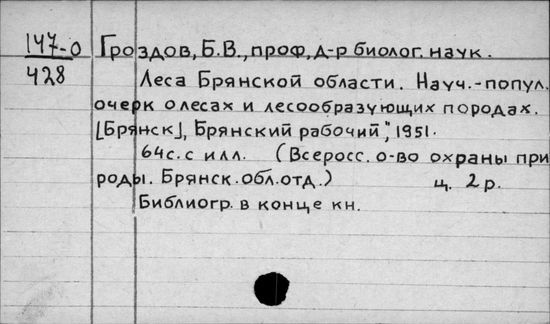 147-0 Гроздов, Б.В., проф, д-р биолог. наук.
428 Леса Брянской области. Науч.-попул.
очерк о лесах и лесообразующих породах.
[Брянск], Брянский рабочий", 1951.
64с. с илл. (Всеросс. о-во охраны при
роды. Брянск. обл. отд.) ц. 2 р.
Библиогр. в конце кн.